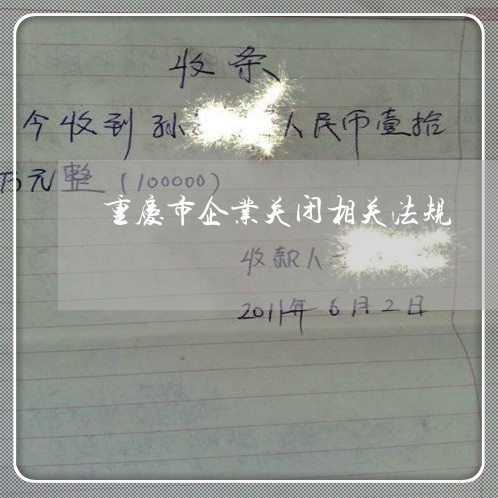 收条
今收到孙 人民币壹拾
万元整（100000）
重慶市企業关闭相关法规
收款人
2011年6月2日